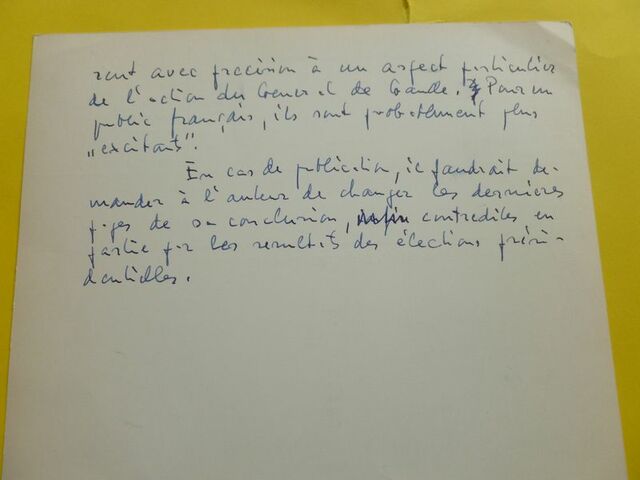 rent avec précision à un aspect particulier
de l'action du General de Gaulle. Pour un
public français, ils sont probablement plus
"excitants".
En cas de publication, il faudrait de-
mander à l'auteur de changer les dernieres
pages de sa conclusion, contredites en
partie par les resultats des élections prési-
dentielles.